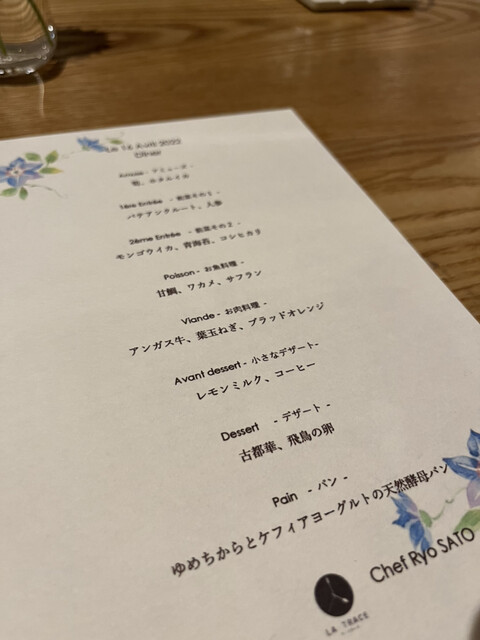 Le 14 Avril 2022
Dîner
Amuse - アミューズ -
蛤、ホタルイカ
1ère Entrée - 前菜その１ -
パテアンクルート、人参
2ème Entrée - 前菜その２ -
モンゴウイカ、青海苔、コシヒカリ
Poisson - お魚料理 -
甘鯛、ワカメ、サフラン
Viande - お肉料理 -
アンガス牛、葉玉ねぎ、ブラッドオレンジ
Avant dessert - 小さなデザート-
レモンミルク、コーヒー
Dessert - デザート -
古都華、飛鳥の卵
Pain - パン -
ゆめちからとケフィアヨーグルトの天然酵母パン
Chef Ryo SATO
LA TRACE